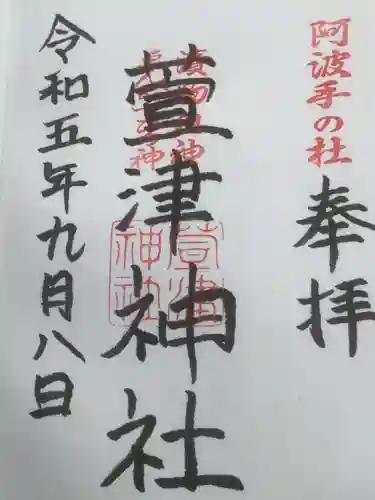 阿波手の社
奉拝
萱津神社
漬物祖神
萱津神社
令和五年九月八日